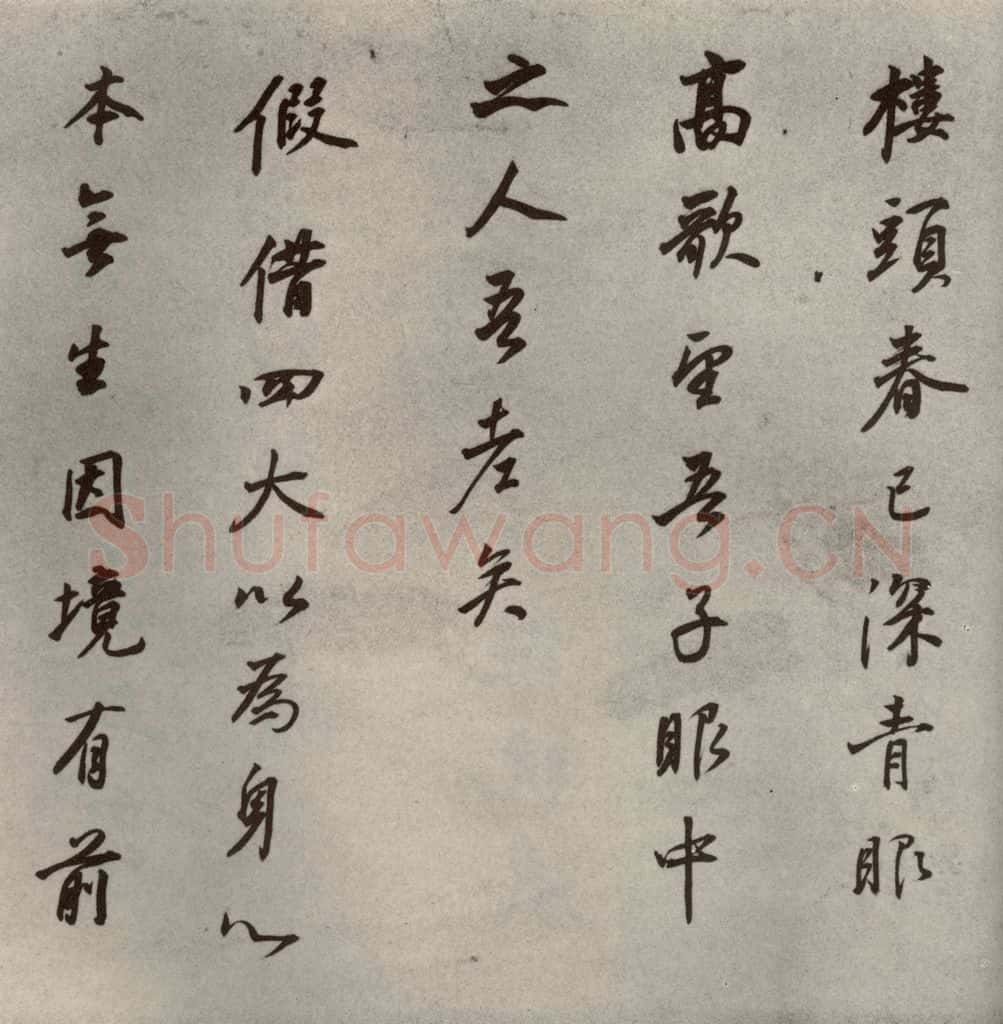 樓頭春已深青眼
高歌望吾子眼中
之人吾老矣
假借四大以為身心
本無生因境有前
Shufawang.CN